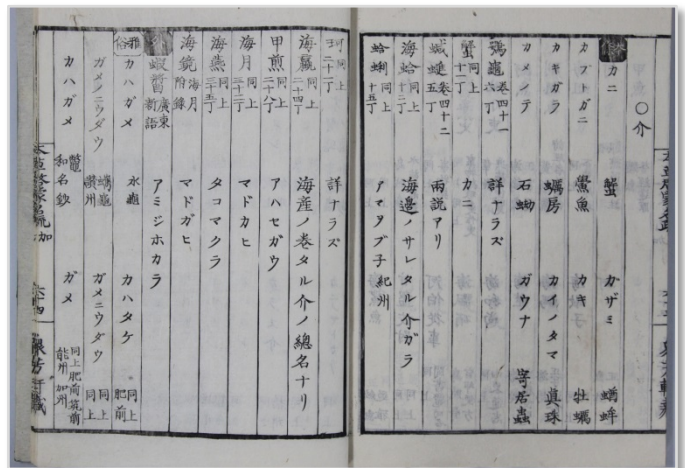 ○介
カニ 蟹 カザミ 蝤蛑
カブトガニ 鱟魚 カキ 牡蠣
カキガラ 蠣房 カイノタマ 真珠
カメノテ 石蜐 ガウナ 寄居蟲
鶚龜 巻四十一 六丁 詳ナラズ
蟹 同上 十一丁 カニ
蝛䗯 巻四十二 五丁 両説アリ
海蛤 同上 十二丁 海邊ノサレタル介ガラ
蛤蜊 同上 十五丁 アマヲブ子 紀州
珂 同上 二十丁 詳ナラズ
海蠃 同上 二十四丁 海産ノ巻タル介ノ總名ナリ
甲煎 同上 二十八丁 アハセガウ
海月 同上 三十二丁 マドカヒ
海燕 同上 三十五丁 タコマクラ
海鏡 海月 附録 マドガヒ
蝦醬 廣東新語 アミジホカラ
雅 俗 カハガメ 水龜 カハタケ 同上 肥前
ガメノニウダウ 蠵龜 讃州 ガメニウダウ 同上 同上
カハガメ 鼈 和名鈔 ガメ 同上 肥前 筑前 能州 加州